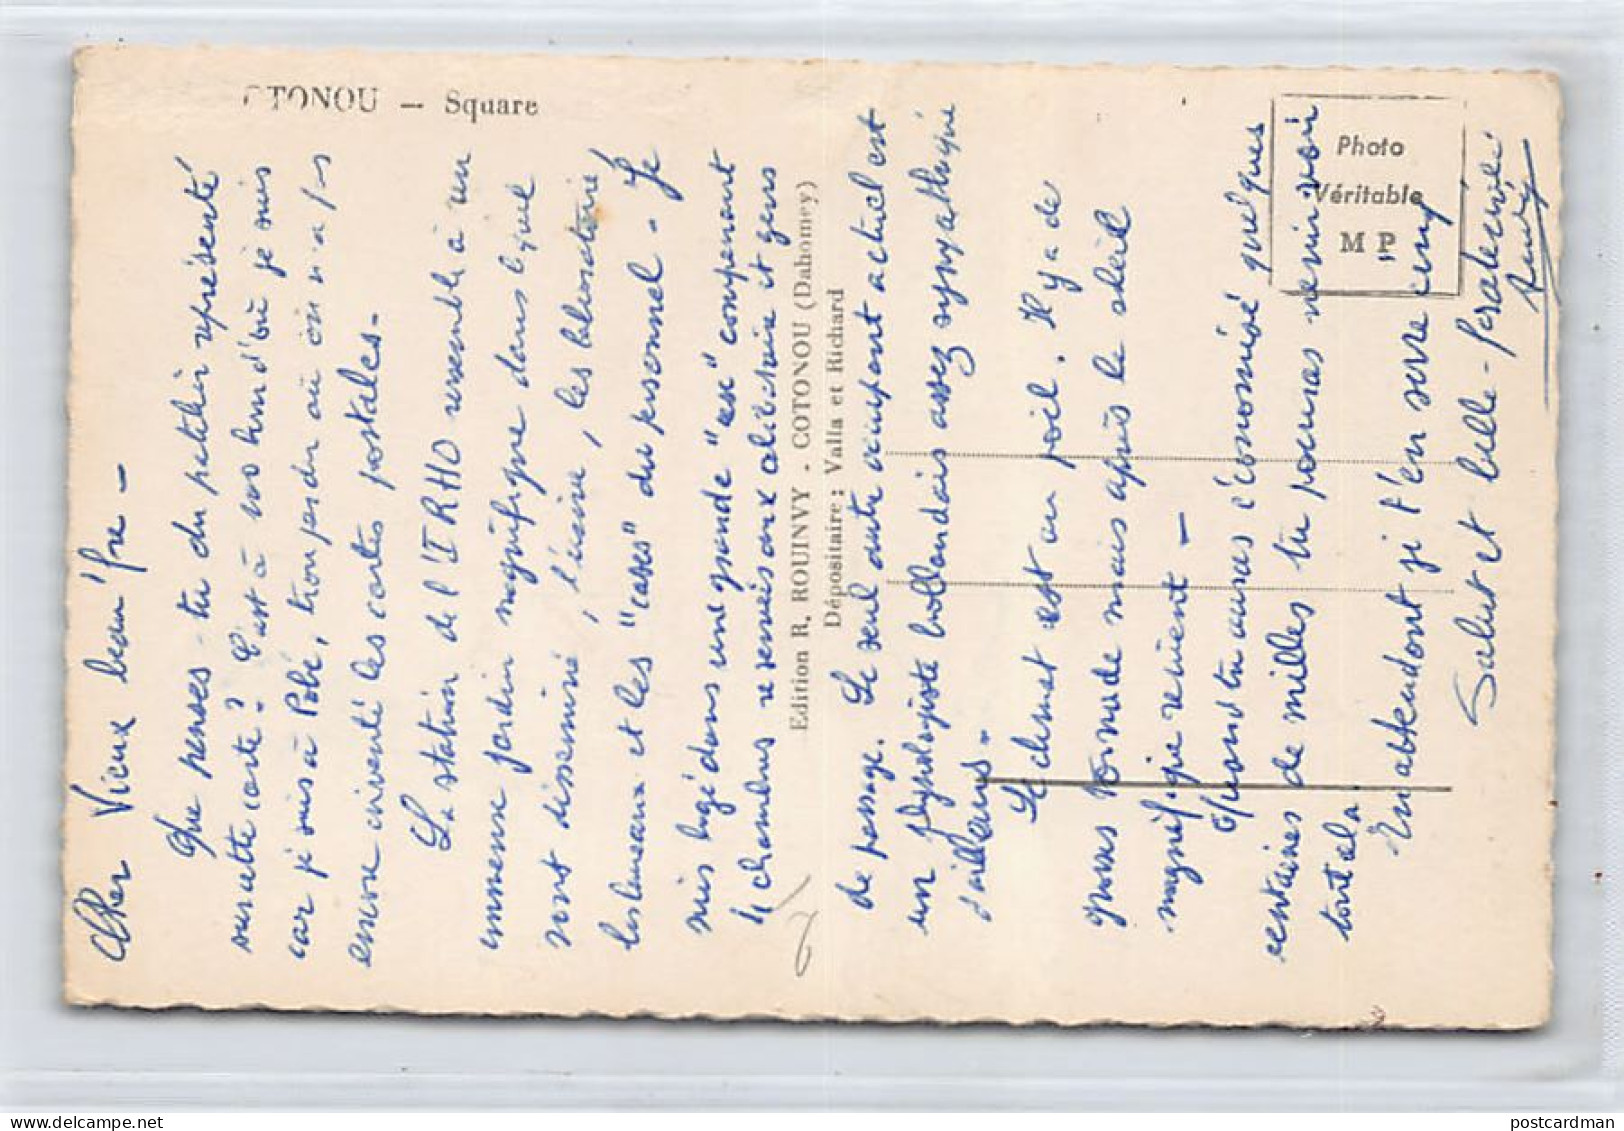 OTONOU — Square
Cher Vieux beau'fre -
Que penses-tu du patelin représenté
sur cette carte? C'est à 100 kms d'où je suis
car je suis à Pobé, trou perdu où on n'a pas
encore inventé les cartes postales -
La station de l'IRHO ressemble à un
immense jardin magnifique dans lequel
sont disséminé, l'usine, les laboratoires
les bureaux et les "cases" du personnel - Je
suis logé dans une grande "case" comprenant
4 chambres réservées aux célibataires et gens
Edition R. ROUINVY - COTONOU (Dahomey)
Dépositaire : Valla et Richard
de passage. Le seul autre occupant actuel est
un hollandais assez sympathique
d'ailleurs -
Le climat est au poil. Il y a de
grosses tornade mais après le soleil
magnifique revient -
Quand tu auras économisé quelques
centaines de milles tu pourras venir voir
tout cela
En attendant je t'en serre cinq
Salut et belle-fraternité
Photo
Véritable
M P
postcardman